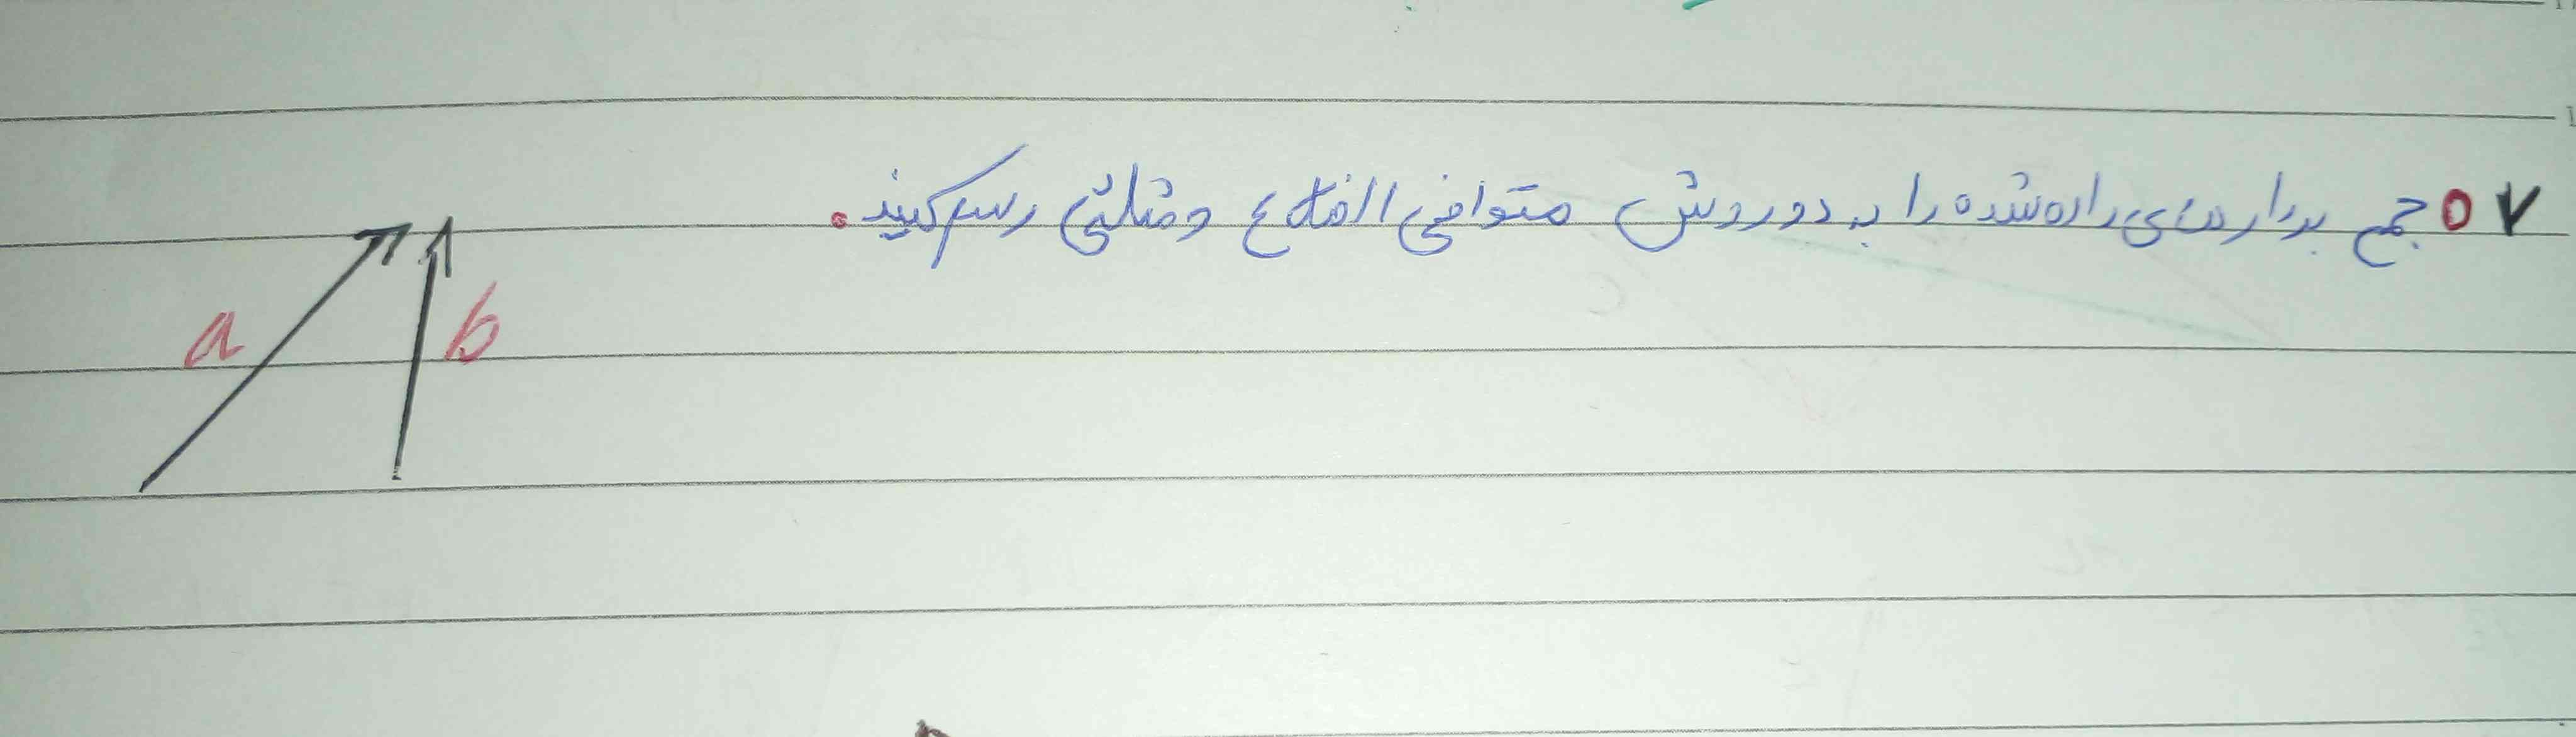 ۷۰ جمع بردارهای داده شده را به دو روش متوازی الاضلاع و مثلثی رسم کنید.
a
b